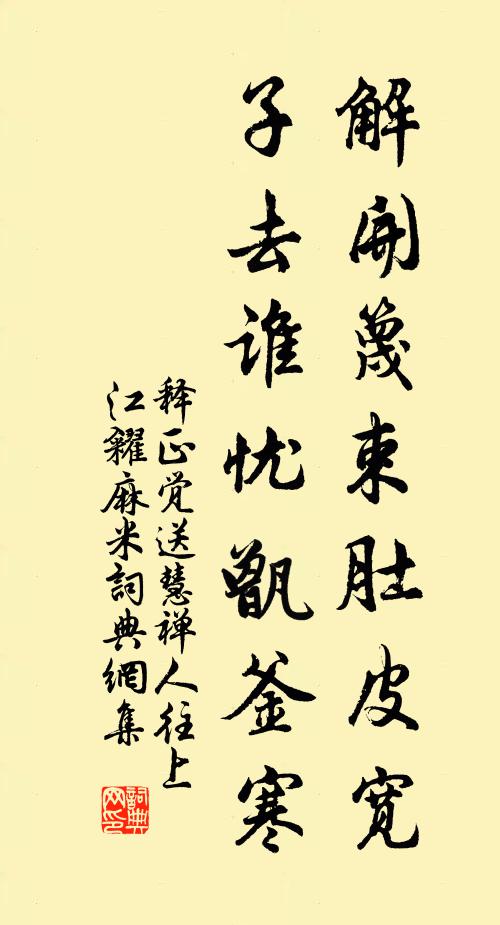 解开篾束肚皮宽
子去谁忧甑釜寒
释正觉送慧禅人往上
江糴麻米詞典網集
詞典网印